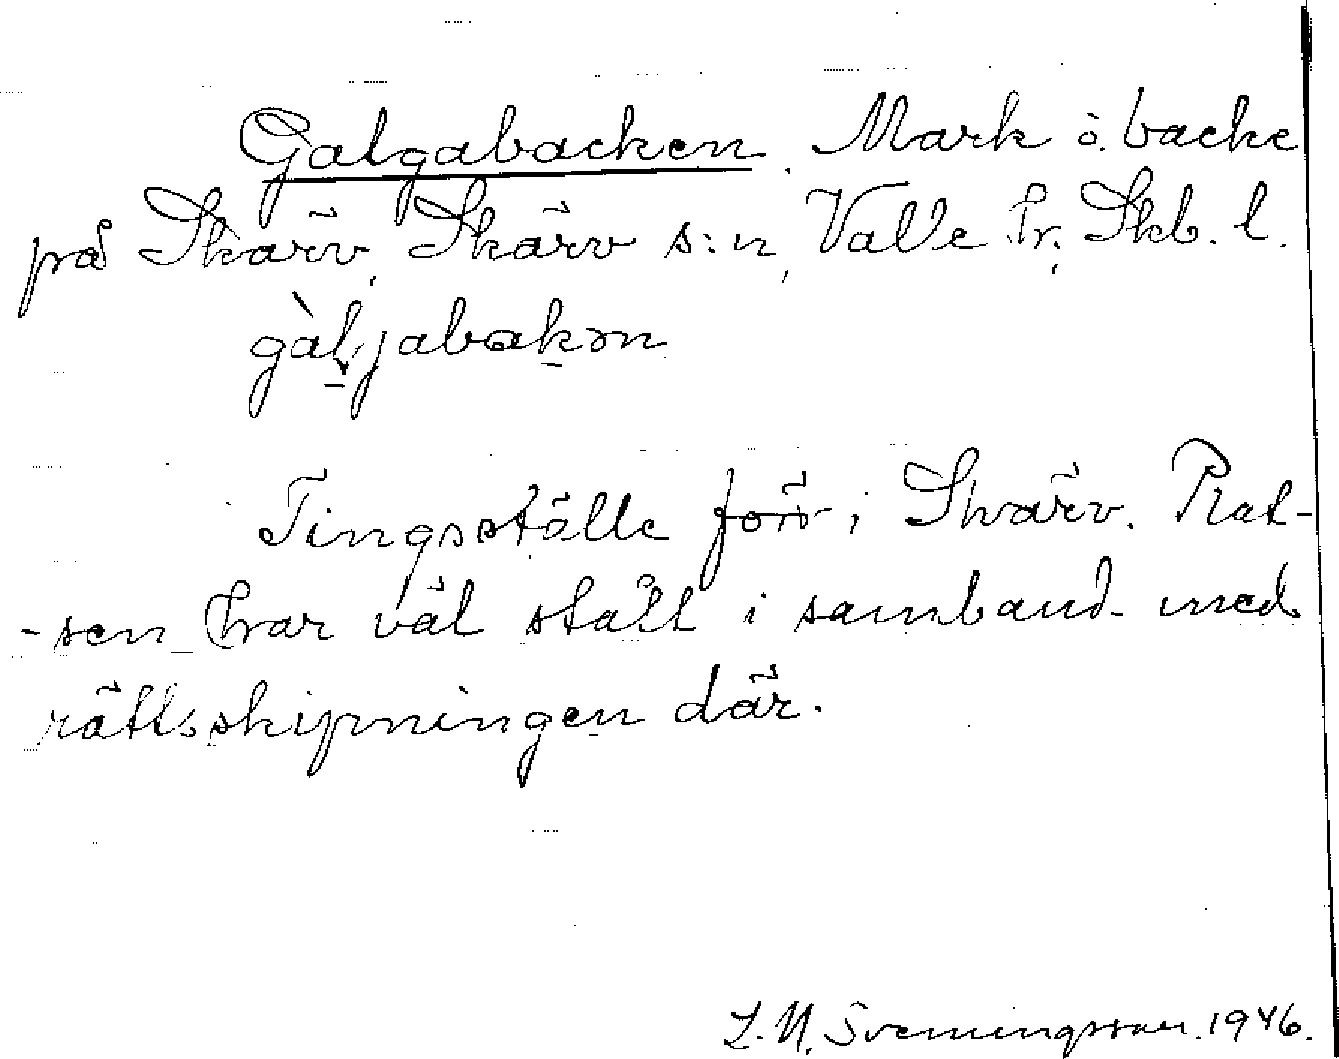 Galgabacken. Mark o. backe
på Skärv, Skärv s:n, Valle hr; Skb. l.
gàljabakən
Tingsställe förr i Skärv. Plat-
-sen har väl stått i samband med
rättsskipningen där.
L. N. Sveningsson. 1946.